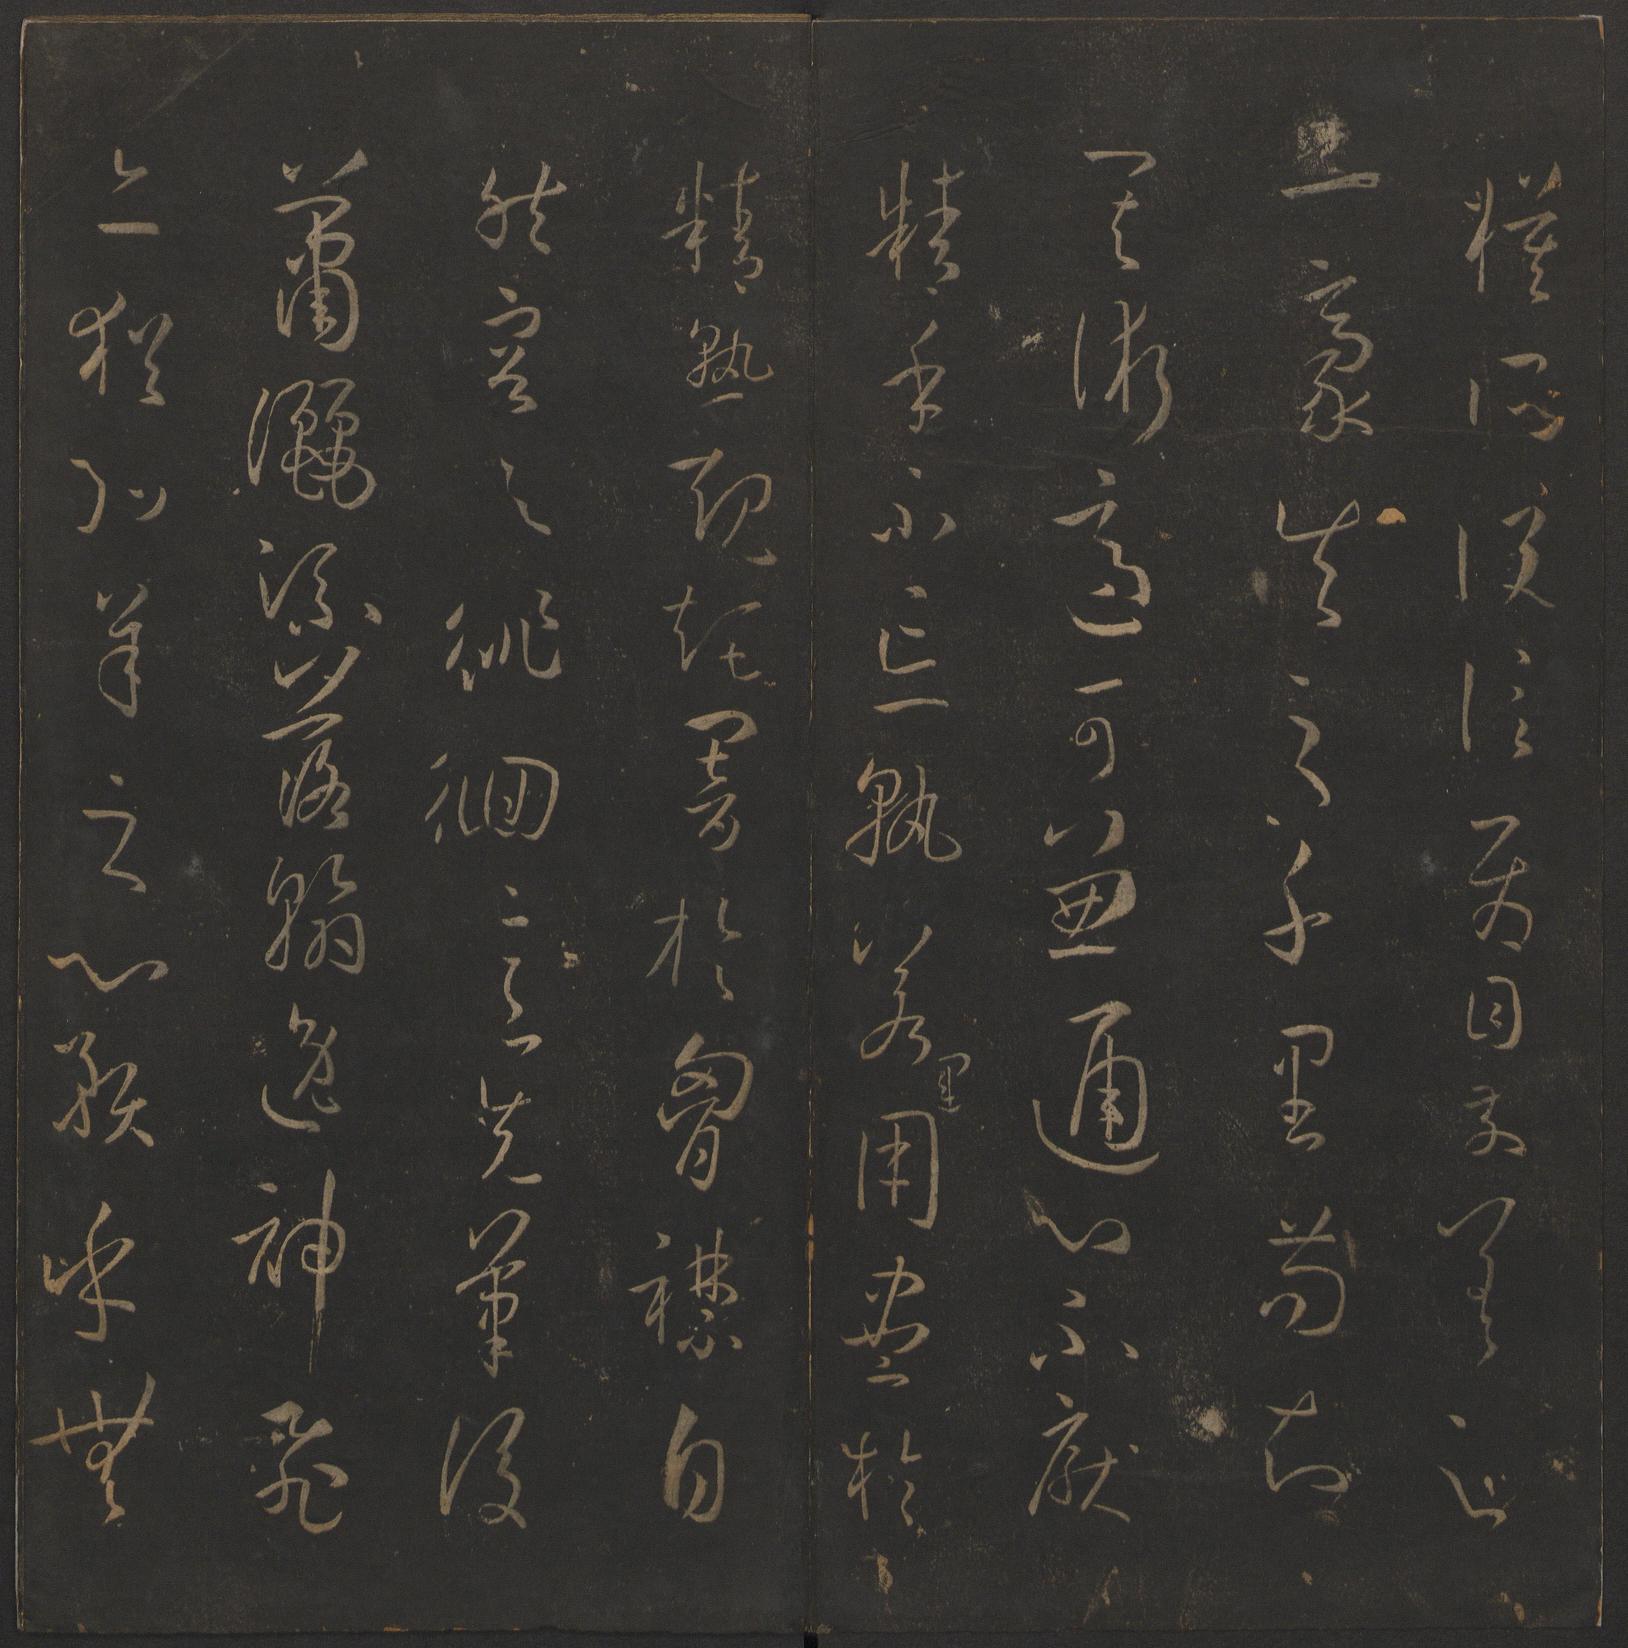 模所設信屬目前差之
一豪失之千里苟知
其術適可兼通心不厭
精手不忘熟若運用盡於
精熟規矩闇於胸襟自
然容與徘徊意先筆後
瀟灑流落翰逸神飛
亦猶弘羊之心預乎無